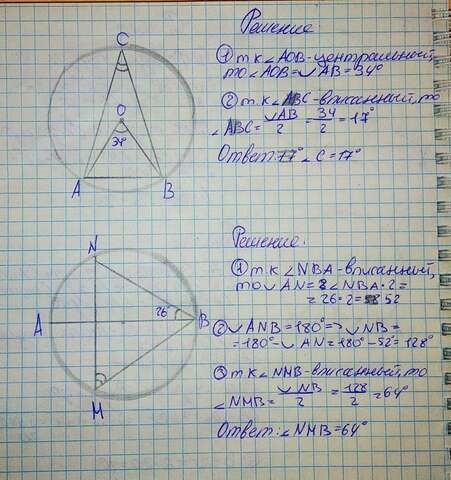 Решение
① т.к ∠AOB-центральный,
то ∠AOB=◡AB=34°
② т.к ∠ABC-вписанный, то
∠ABC= ◡AB/2 = 34/2 = 17°
Ответ: 77° ∠C=17°
C
O
34°
A B
Решение.
① т.к ∠NBA-вписанный,
то ◡AN=2∠NBA·2=
=26·2=52
② ◡ANB=180°=>◡NB=
=180°-◡AN=180°-52°=128°
③ т.к ∠NMB-вписанный, то
∠NMB= ◡NB/2 = 128/2 =64°
Ответ: ∠NMB=64°
N
26°
A B
M